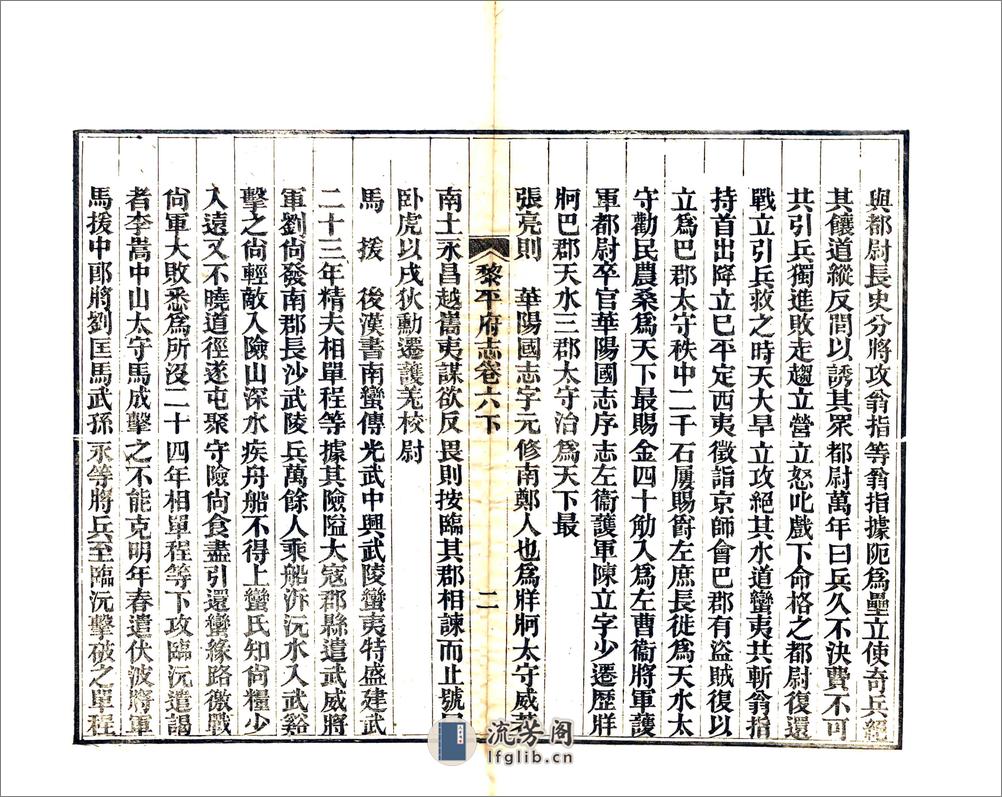 與都尉長史分將攻翁指等翁指據阨爲壘立使奇兵經
其饟道縱反間以誘其眾都尉萬年曰兵久不決費不可
共引兵獨進敗走趨立營立怒叱戲下命格之都尉復還
戰立引兵救之時天大旱立攻絕其水道蠻夷共斬翁指
持首出降立已平定西夷徵詣京師會巴郡有盜賊復以
立爲巴郡太守秩中二千石屢賜爵左庶長徙爲天水太
守勸民農桑爲天下最賜金四十觔入爲左曹衞將軍護
軍都尉卒官華陽國志序志左衞護軍陳立字少遷歷牂
牁巴郡天水三郡太守治爲天下最
張亮則 華陽國志字元修南鄭人也爲牂牁太守威著
黎平府志卷六下 二
南土永昌越嶲夷謀欲反畏則按臨其郡相諫而止號曰
卧虎以戍狄勳遷護羌校尉
馬援 後漢書南蠻傳光武中興武陵蠻夷特盛建武
二十三年精夫相單程等據其險隘大寇郡縣遣武威將
軍劉尙發南郡長沙武陵兵萬餘人乘船泝沅水入武谿
擊之尙輕敵入險山深水疾舟船不得上蠻氏知尙糧少
入遠又不曉道徑遂屯聚守險尙食盡引還蠻緣路徼戰
尙軍大敗悉爲所沒二十四年相單程等下攻臨沅遣謁
者李嵩中山太守馬成擊之不能克明年春遣伏波將軍
馬援中郎將劉匡馬武孫永等將兵至臨沅擊破之單程
流芳阁
lfglib.cn